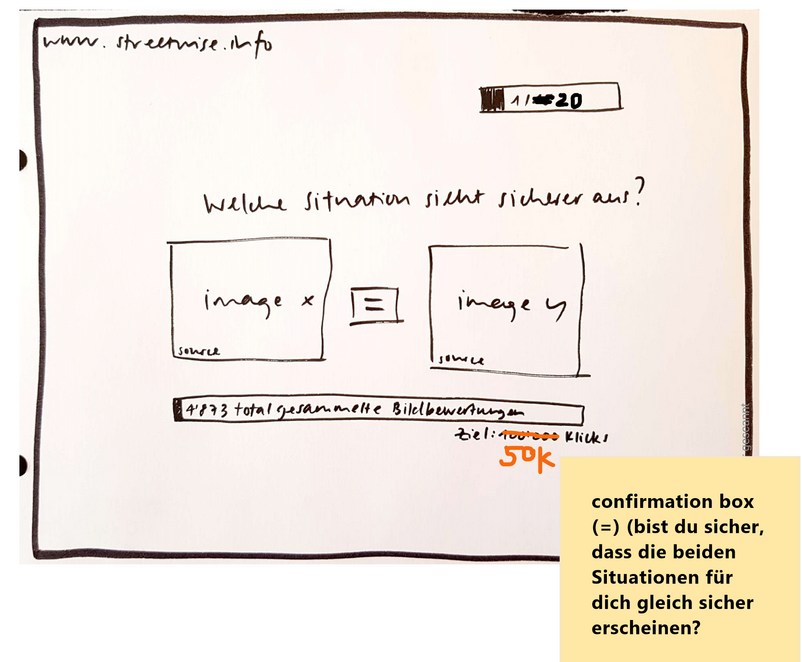 www.streetwise.info
1/20
Welche Situation sieht sicherer aus?
image x
=
image y
source
source
4'873 total gesammelte Bildbewertungen
Ziel: 100'000 Klicks
50K
gescannt
confirmation box
(=) (bist du sicher,
dass die beiden
Situationen für
dich gleich sicher
erscheinen?